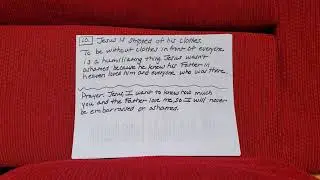 10. Jesus is stripped of his clothes.
To be without clothes in front of everyone
is a humiliating thing. Jesus wasn't
ashamed because he knew his Father in
heaven loved him and everyone who was there.
Prayer: Jesus, I want to know how much
you and the Father love me, so I will never
be embarrassed or ashamed.